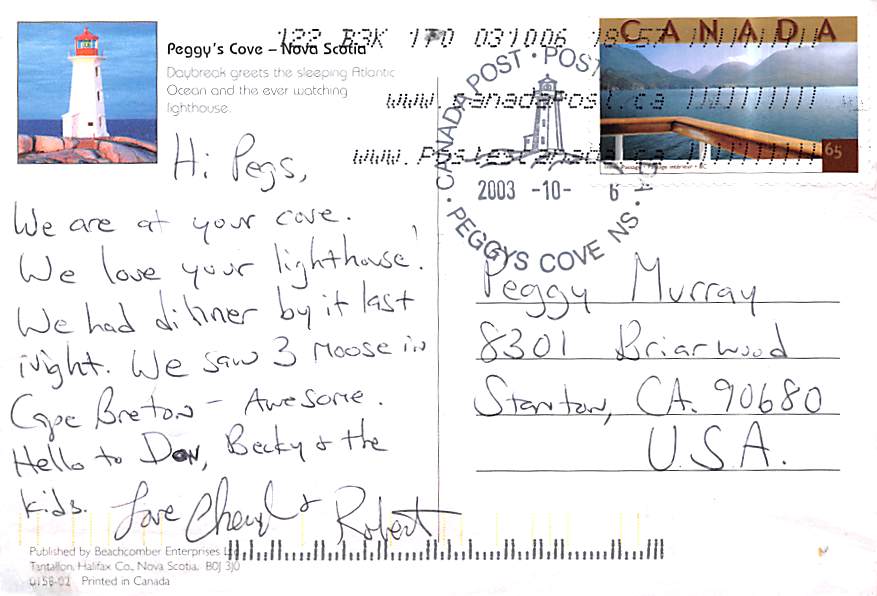 Peggy's Cove – Nova Scotia
Daybreak greets the sleeping Atlantic
Ocean and the ever watching
lighthouse.
122 B3K 1T0 031006 18:57
www.canadapost.ca
www.postescanada.ca
CANADA
65
CANADA POST · POSTES CANADA ·
2003 -10- 6
· PEGGYS COVE NS ·
Hi Pegs,
We are at your cove.
We love your lighthouse!
We had dinner by it last
night. We saw 3 moose in
Cape Breton - Awesome.
Hello to Don, Becky & the
kids. Love Cheryl & Robert
Peggy Murray
8301 Briarwood
Stanton, CA. 90680
U.S.A.
Published by Beachcomber Enterprises Ltd.
Tantallon, Halifax Co., Nova Scotia, B0J 3J0
0158-02 Printed in Canada